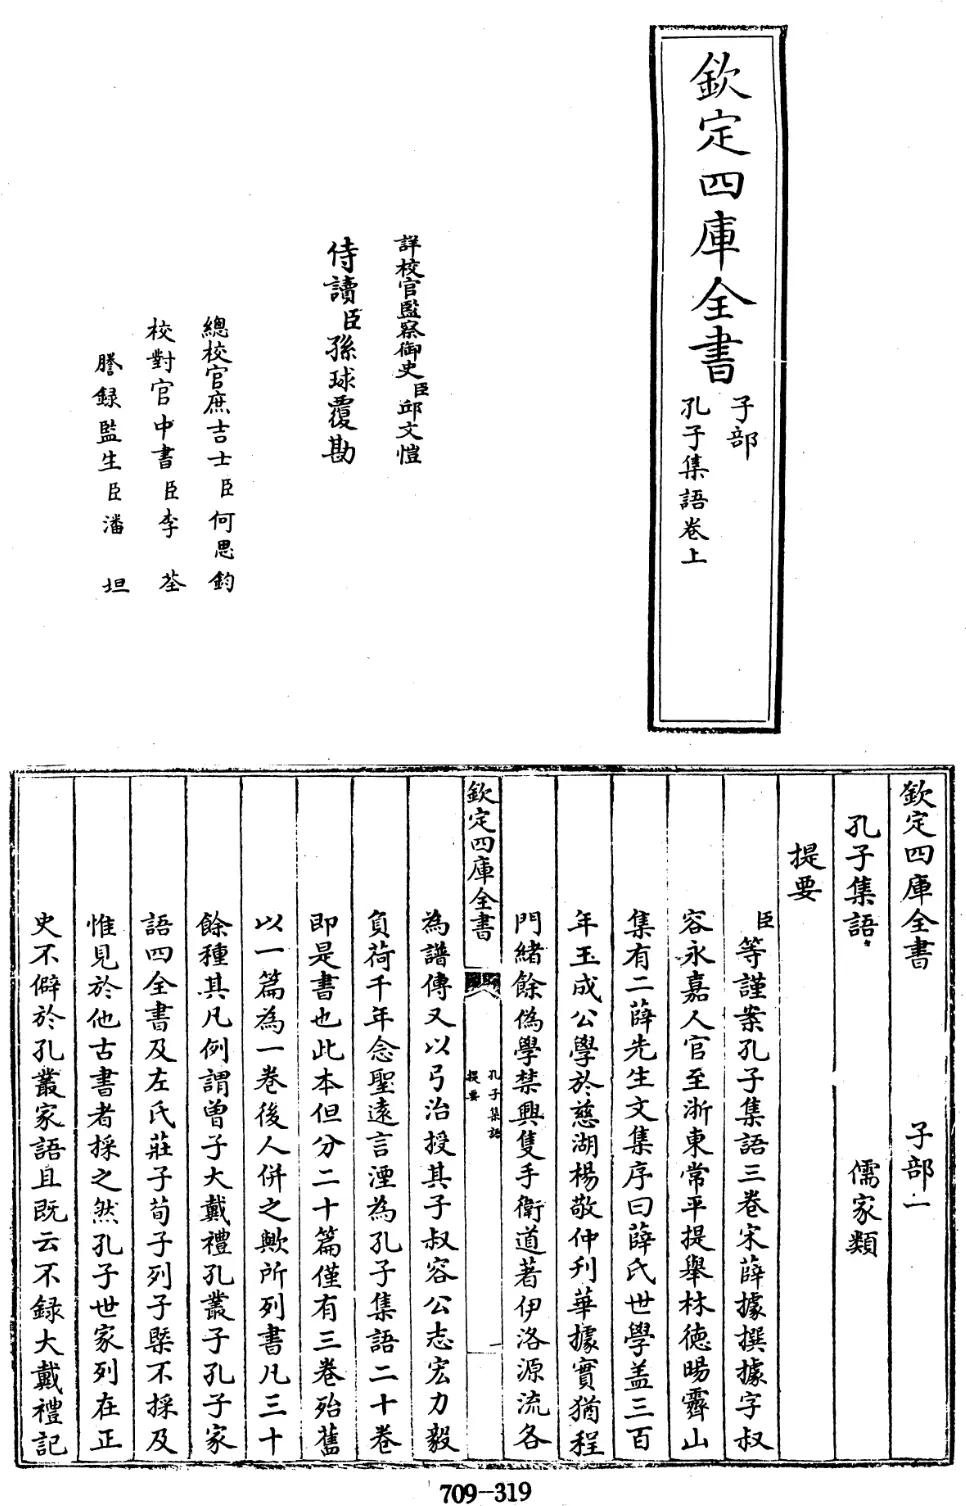 欽定四庫全書
子部
孔子集語卷上
詳校官監察御史臣邱文愷
侍讀臣孫球覆勘
總校官庶吉士臣何思鈞
校對官中書臣李荃
謄録監生臣潘坦
欽定四庫全書 子部一
孔子集語 儒家類
提要
臣等謹案孔子集語三卷宋薛據撰據字叔
容永嘉人官至浙東常平提舉林德暘霽山
集有二薛先生文集序曰薛氏世學盖三百
年玉成公學於慈湖楊敬仲刋華據實猶程
門緒餘偽學禁興隻手衛道著伊洛源流各
欽定四庫全書
孔子集語
提要
一
為譜傳又以弓治授其子叔容公志宏力毅
負荷千年念聖遠言湮為孔子集語二十卷
即是書也此本但分二十篇僅有三卷殆舊
以一篇為一卷後人併之歟所列書凡三十
餘種其凡例謂曾子大戴禮孔叢子孔子家
語四全書及左氏莊子荀子列子槩不採及
惟見於他古書者採之然孔子世家列在正
史不僻於孔叢家語且既云不録大戴禮記
709-319